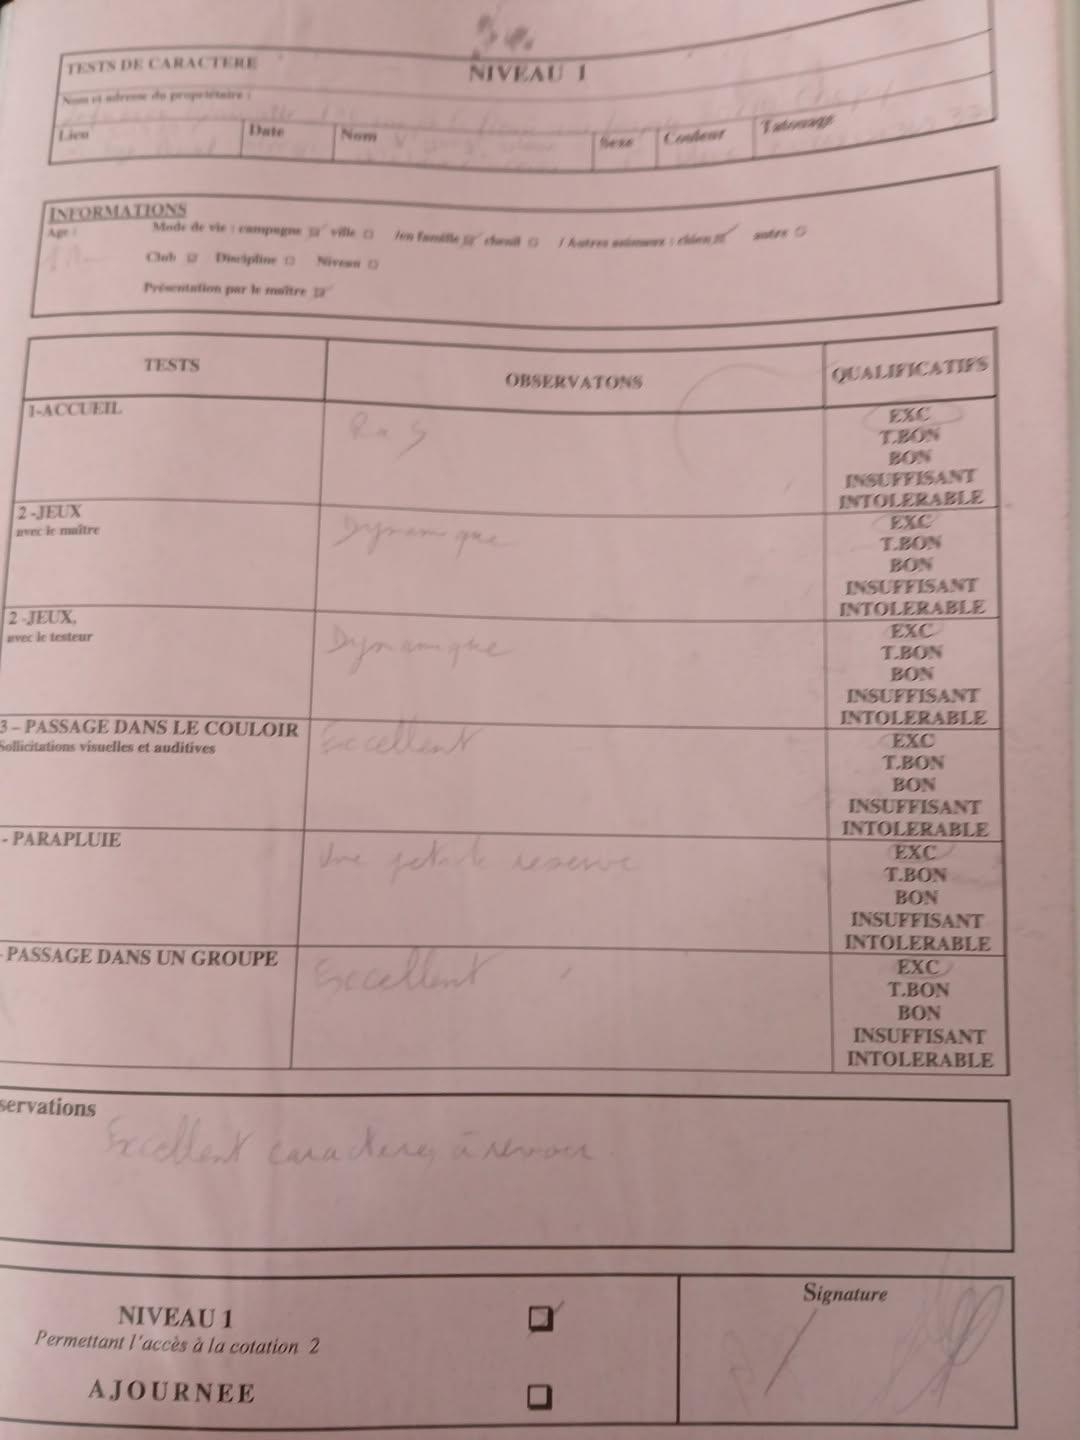 TESTS DE CARACTERE
NIVEAU 1
Nom et adresse du propriétaire :
Lieu Date Nom Sexe Couleur Tatouage
INFORMATIONS
Age : Mode de vie : campagne ville /en famille chenil / Autres animaux : chien autre
Club Discipline Niveau
Présentation par le maître
TESTS OBSERVATONS QUALIFICATIFS
1-ACCUEIL
RaS
EXC
T.BON
BON
INSUFFISANT
INTOLERABLE
2 -JEUX
avec le maître
Dynamique
EXC
T.BON
BON
INSUFFISANT
INTOLERABLE
2 -JEUX,
avec le testeur
Dynamique
EXC
T.BON
BON
INSUFFISANT
INTOLERABLE
3 – PASSAGE DANS LE COULOIR
Sollicitations visuelles et auditives
Excellent
EXC
T.BON
BON
INSUFFISANT
INTOLERABLE
- PARAPLUIE
Une reserve
EXC
T.BON
BON
INSUFFISANT
INTOLERABLE
- PASSAGE DANS UN GROUPE
Excellent
EXC
T.BON
BON
INSUFFISANT
INTOLERABLE
servations
Excellent caractere, à revoir
NIVEAU 1
Permettant l'accès à la cotation 2
AJOURNEE
Signature